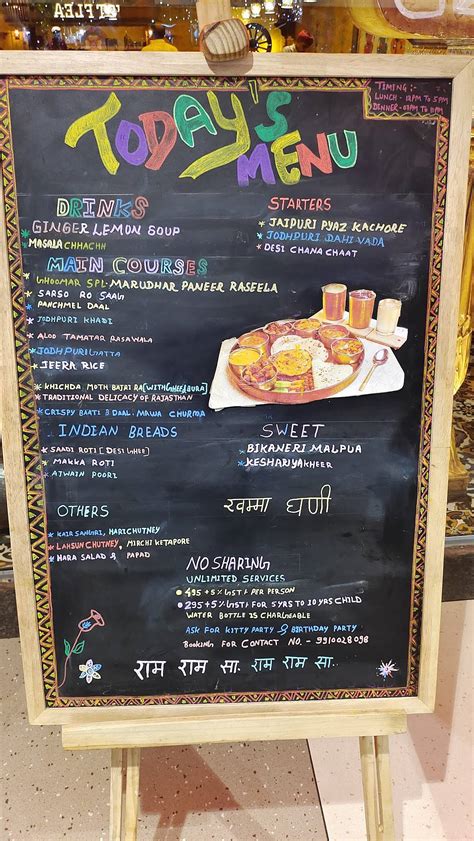 TODAY'S MENU
TIMING :-
LUNCH - 12PM TO 5PM
DINNER - 07PM TO 11PM
DRINKS
GINGER LEMON SOUP
MASALA CHHACHH
STARTERS
* JAIPURI PYAZ KACHORE
* JODHPURI DAHI VADA
* DESI CHANA CHAAT
MAIN COURSES
* GHOOMAR SPL- MARUDHAR PANEER RASEELA
* SARSO RO SAAG
* PANCHMEL DAAL
* JODHPURI KHADI
* ALOO TAMATAR RASAWALA
* JODHPURI GATTA
* JEERA RICE
* KHICHDA MOTH BAJRI RA [WITH GHEE & BURA]
* TRADITIONAL DELICACY OF RAJASTHAN
* CRISPY BAATI & DAAL: MAWA CHURMA
INDIAN BREADS
* SAADI ROTI [DESI GHEE]
* MAKKA ROTI
* AJWAIN POORI
SWEET
* BIKANERI MALPUA
* KESHARIYA KHEER
OTHERS
* KAIR SANGRI, HARI CHUTNEY
* LAHSUN CHUTNEY, MIRCHI KE TAPORE
* HARA SALAD & PAPAD
खम्मा घणी
NO SHARING
UNLIMITED SERVICES
495 + 5% GST PER PERSON
295 + 5% GST FOR 5 YRS TO 10 YRS CHILD
WATER BOTTLE IS CHARGEABLE
ASK FOR KITTY PARTY & BIRTHDAY PARTY
BOOKING FOR CONTACT NO. - 9910028098
राम राम सा. राम राम सा..